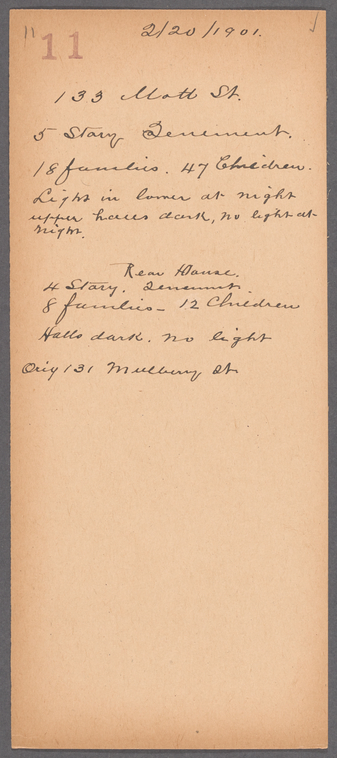 11
11
2/20/1901.
133 Mott St.
5 Story Tenement.
18 families. 47 Children.
Light in lower at night
upper halls dark, no light at
night.
Rear House.
4 Story. Tenement.
8 families - 12 Children
Halls dark. no light
Orig 131 Mulberry St